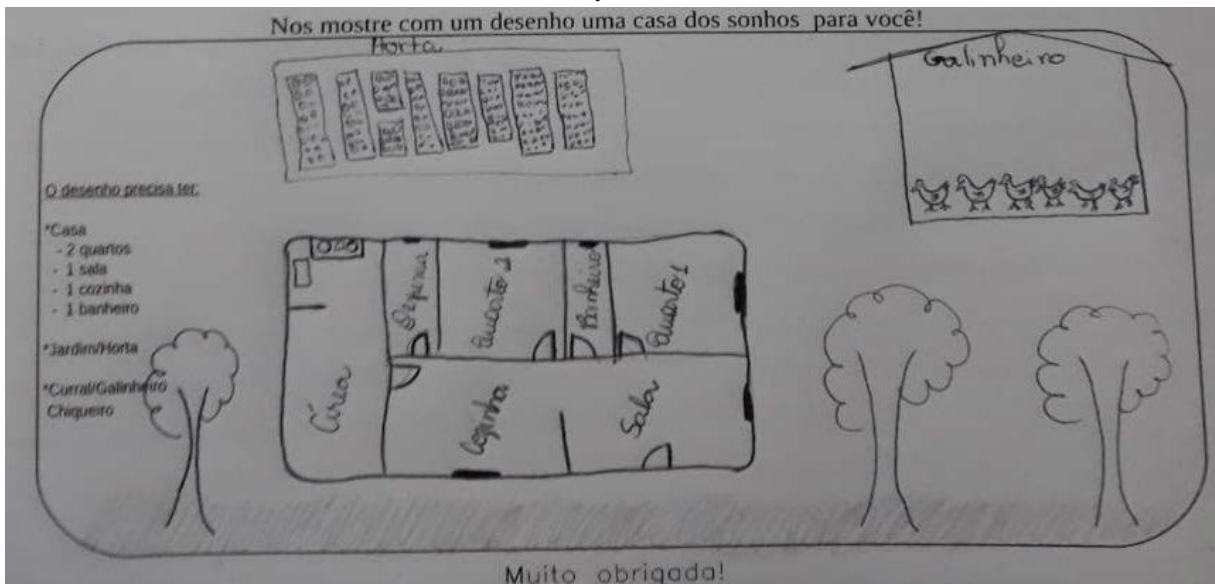 Nos mostre com um desenho uma casa dos sonhos para você!
Horta
Galinheiro
O desenho precisa ter:
*Casa
- 2 quartos
- 1 sala
- 1 cozinha
- 1 banheiro
*Jardim/Horta
*Curral/Galinheiro
Chiqueiro
Área
Quarto 2
Banheiro
Quarto 1
Cozinha
Sala
Muito obrigada!